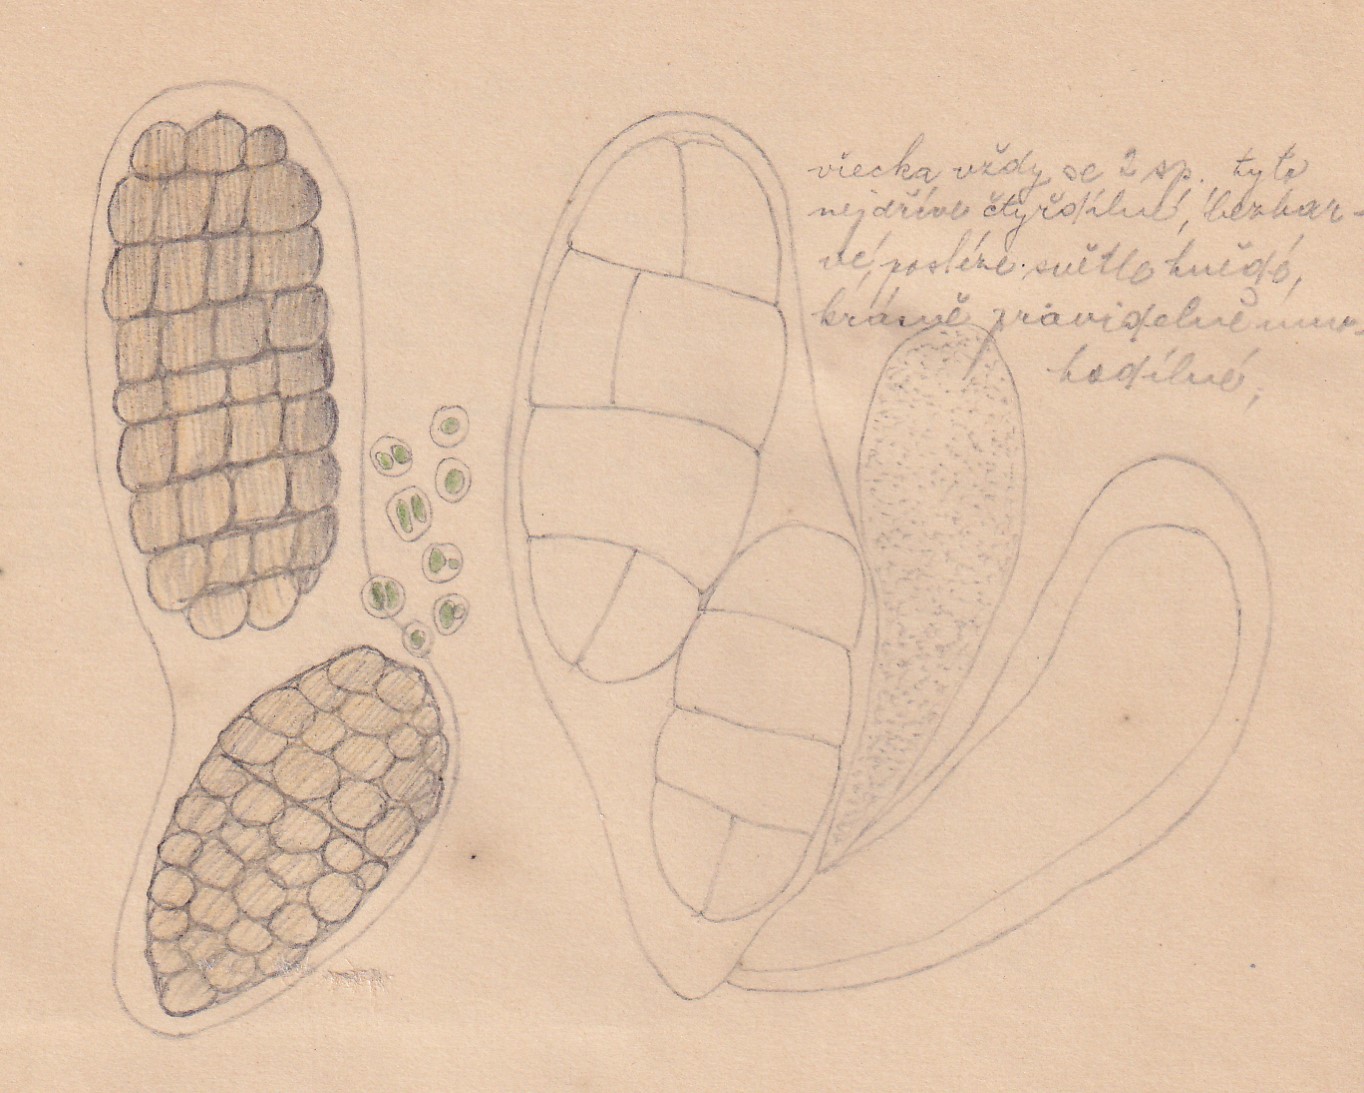 vřecka vždy se 2 sp. tyto
nejdříve čtyřdílné, bezbar-
vé, posléze světlo hnědé,
krásně pravidelně mno-
hodílné,